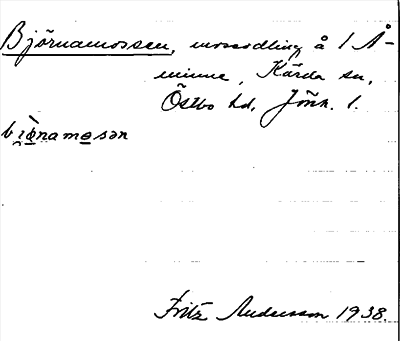 Björnamossen, mossodling å 1 Å-
minne, Kärda sn,
Östbo hd, Jönk. l.
bi̯ø̀namosən
Fritz Andersson 1938.